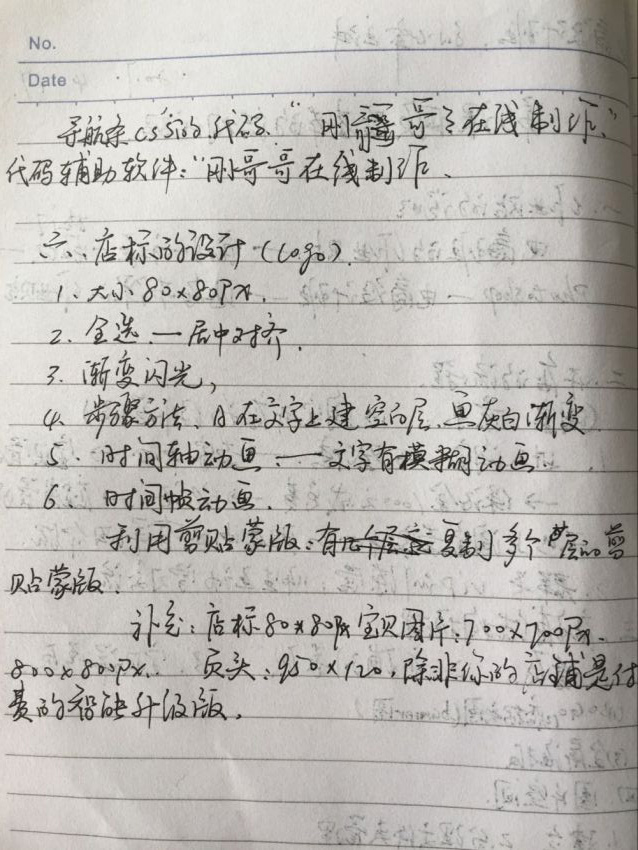 No.
Date
导航条CSS的代码."刚哥哥在线制作."
代码辅助软件:"刚哥哥在线制作.
六、店标的设计(Logo).
1、大小80x80px.
2、全选.一居中对齐.
3、渐变闪光,
4、步骤方法、在文字上建空白层.画灰白渐变
5、时间轴动画.——文字有模糊动画.
6、时间帧动画.
利用剪贴蒙版:复制多个层的剪
贴蒙版.
补充:店标80x80px宝贝图片:700x700px.
800x800px. 页头:950x120,除非你的店铺是付
费的智能升级版.